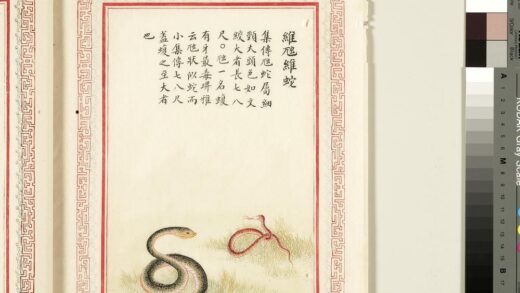 維虺維蛇
集傳虺蛇屬細
頸大頭色如文
綬大者長七八
尺○虺一名蝮
有牙最毒埤雅
云虺狀似蛇而
小集傳七八尺
蓋蝮之至大者
也
A
M
B